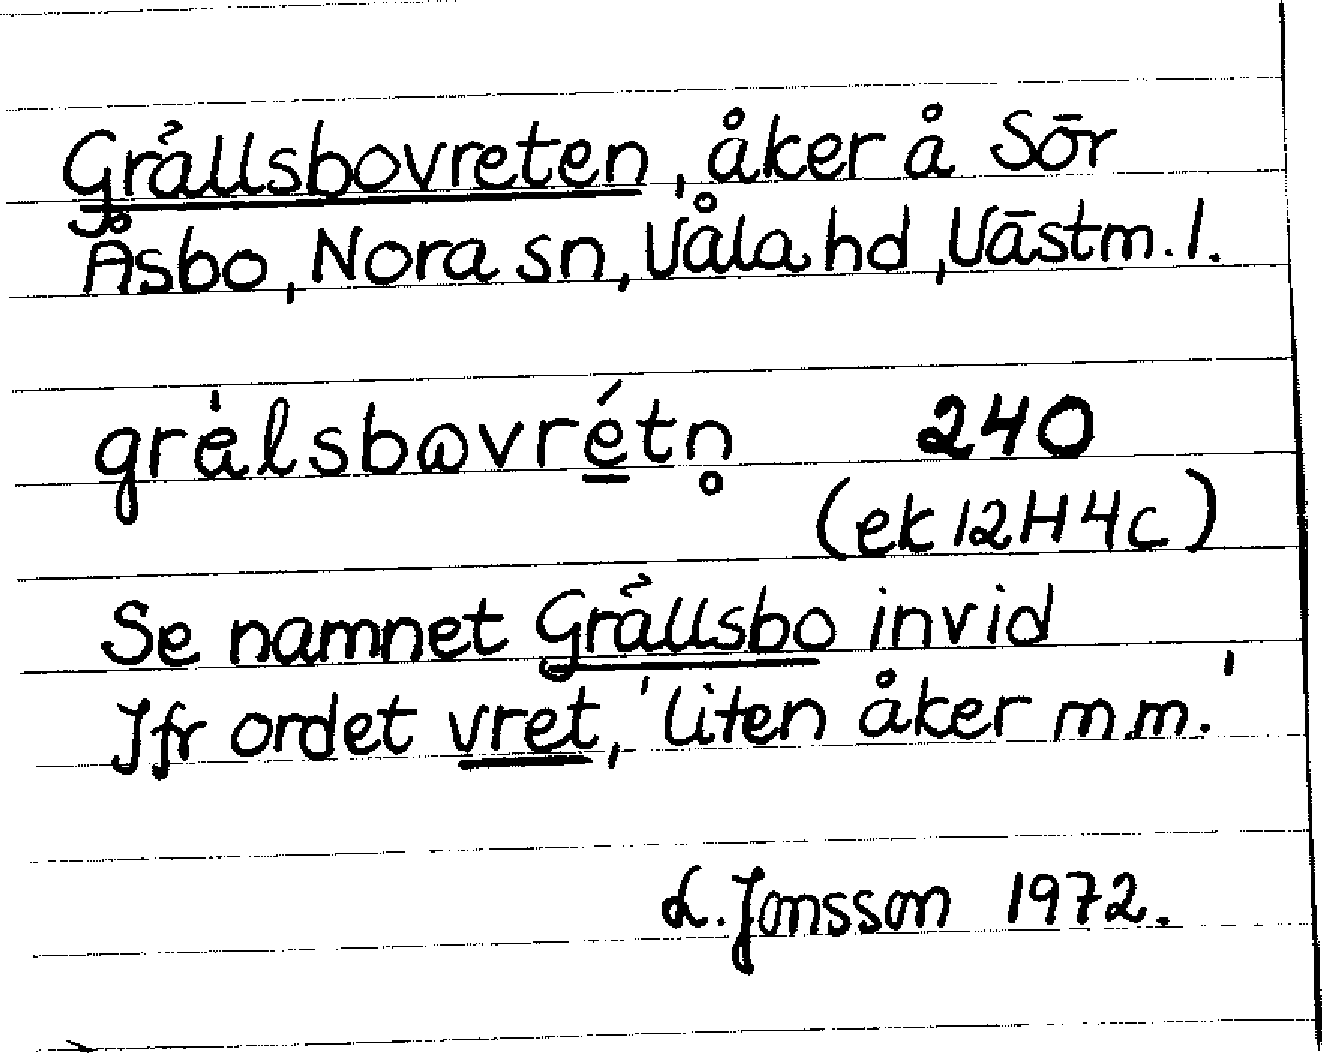 Grällsbovreten, åker å Sör
Åsbo, Nora sn, Våla hd, Västm. l.
grälsbωvrétn̥ 240
(ek 12H4c)
Se namnet Grällsbo invid
Jfr ordet vret, 'liten åker m.m.'
L. Jonsson 1972.